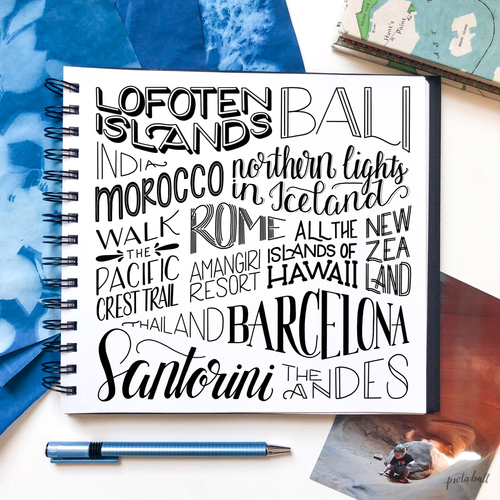 LOFOTEN ISLANDS
BALI
INDIA
MOROCCO
northern lights
in Iceland
WALK
THE
PACIFIC
CREST TRAIL
ROME
AMANGIRI
RESORT
ALL THE
ISLANDS OF
HAWAII
NEW
ZEA
LAND
THAILAND
BARCELONA
Santorini
THE
ANDES
Hunt's
Point
piotaball